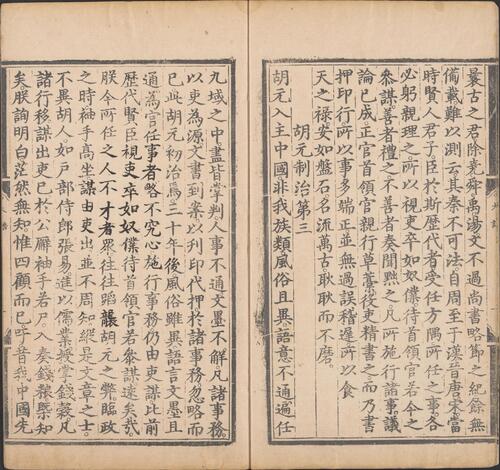 曩古之君除堯舜禹湯文不過尚書略節之紀餘無
備載難以測云其秦不可法自周至于漢晉唐宋當
時賢人君子臣於斯歷代者受任方隅所任之事各
必躬親理之所以視吏卒如奴僕待首領官若今之
叅謀善者禮之不善者奏聞黜之凡所施行諸事議
論已成正官首領官親行草藁後吏精書之而乃書
押印行所以事多端正並無過誤稽遲所以食
天之祿安如盤石名流萬古耿耿而不磨
胡元制治第三
胡元入主中國非我族類風俗且異語意不通遍任
九域之中盡皆掌判人事不通文墨不解凡諸事務
以吏為源文書到案以刊印代押於諸事務忽略而
已此胡元初治焉三十年後風俗雖異語言文墨且
通為官任事者略不究心施行事務仍由吏謀比前
歷代賢臣視吏卒如奴僕待首領官若叅謀遠矣哉
朕今所任之人不才者衆往往蹈襲胡元之弊臨政
之時袖手高坐謀由吏出並不周知縱是文章之士
不異胡人如戶部侍郎張易進以儒業授掌錢穀凡
諸行移謀出吏已於公廨袖手若尸入奏錢糧槩知
矣朕詢明白茫然無知惟四顧而已吁昔我中國先